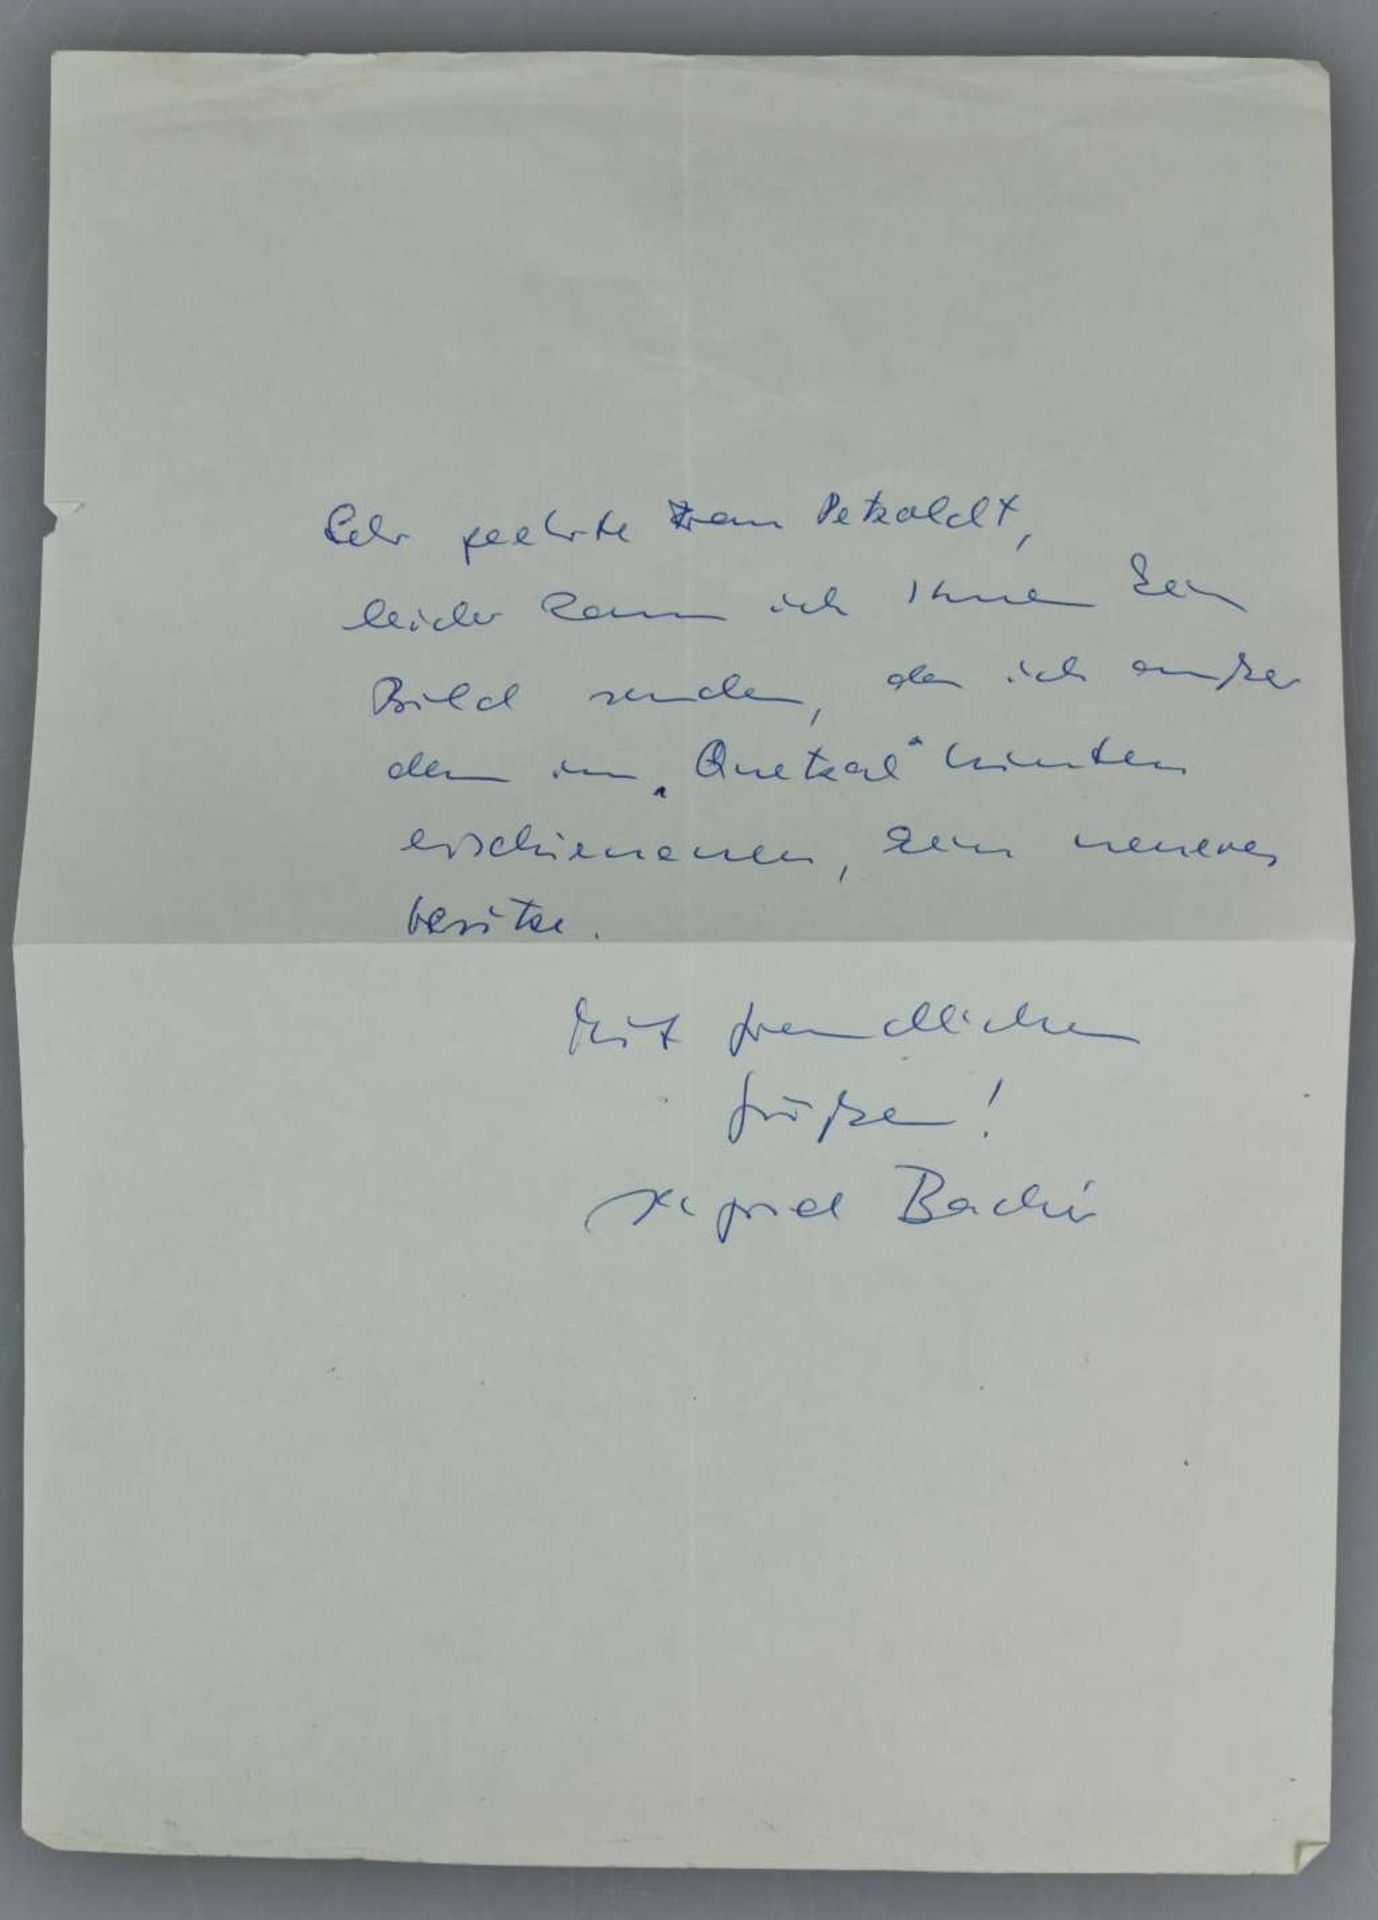 Sehr geehrte Frau Petzoldt,
leider kann ich Ihnen kein
Bild senden, da ich außer
dem im „Quetzal“ hinten
erschienenen, kein neueres
besitze.
Mit freundlichen
Grüßen!
Ingrid Bachér